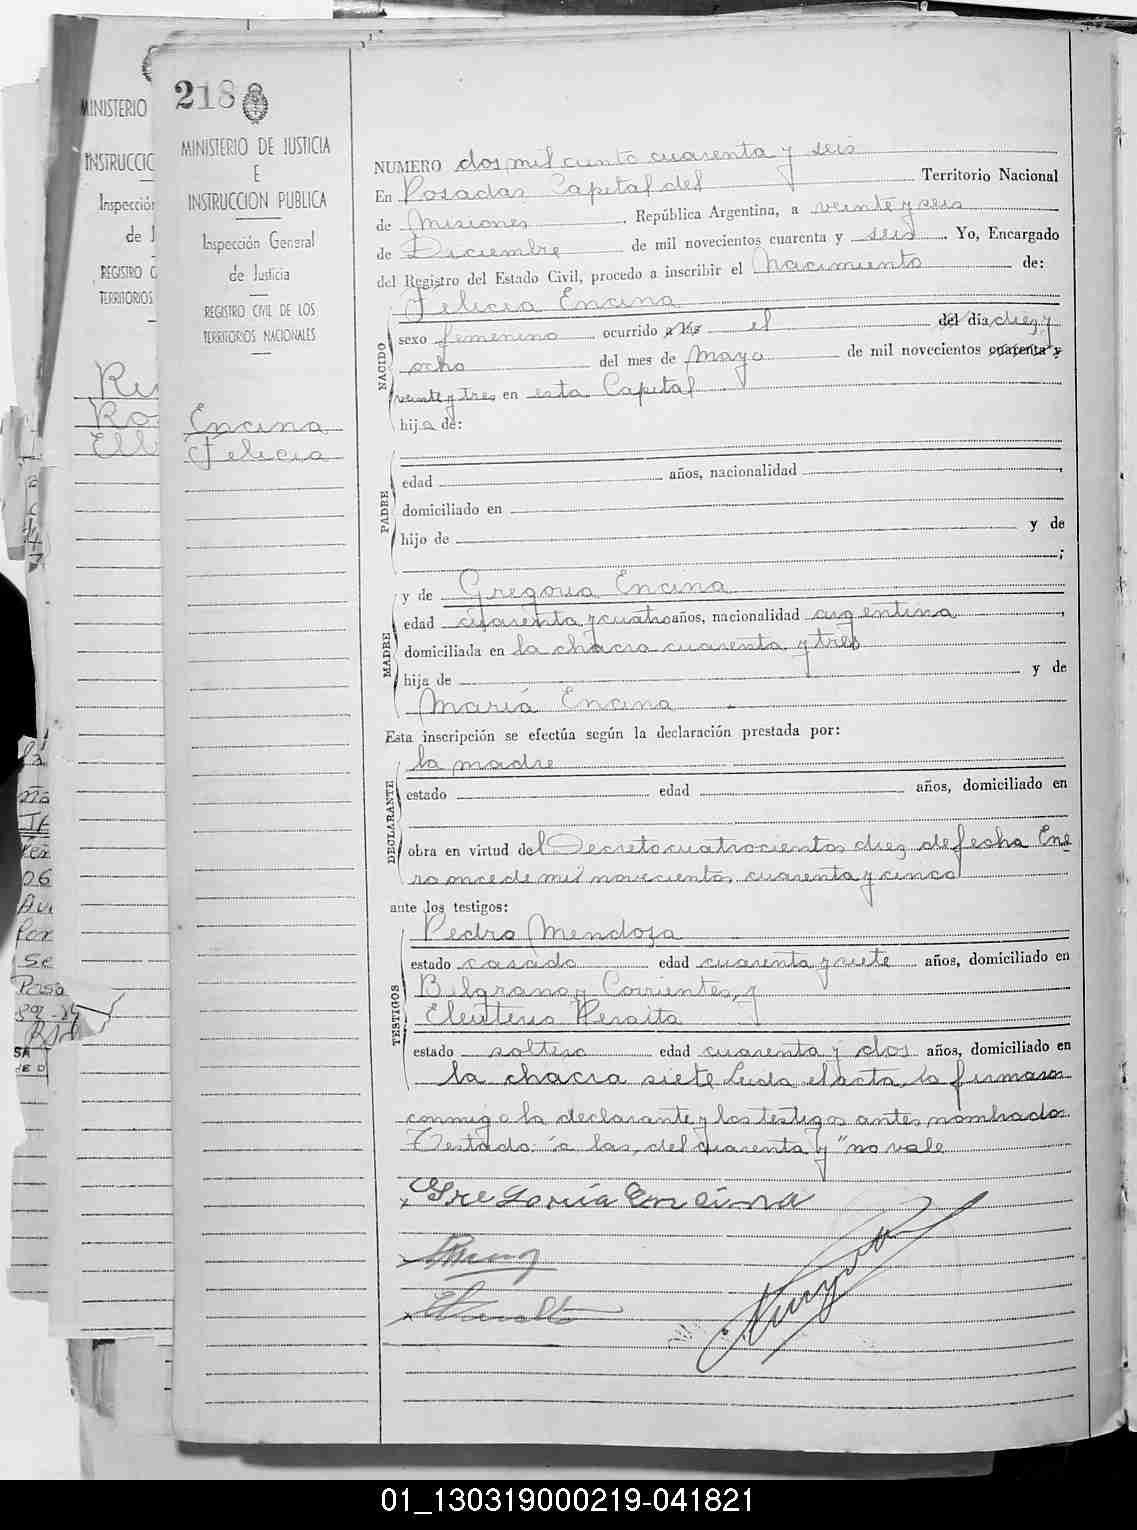 218
MINISTERIO DE JUSTICIA
E
INSTRUCCION PUBLICA
Inspección General
de Justicia
REGISTRO CIVIL DE LOS
TERRITORIOS NACIONALES
Encina
Felicia
MINISTERIO
INSTRUCCIO
Inspección
de J
REGISTRO C
TERRITORIOS
NUMERO dos mil ciento cuarenta y seis
En Posadas Capital del Territorio Nacional
de Misiones, República Argentina, a veinte y seis
de Diciembre de mil novecientos cuarenta y seis. Yo, Encargado
del Registro del Estado Civil, procedo a inscribir el Nacimiento de:
NACIDO
Felicia Encina
sexo femenino ocurrido a las el del día diez y
ocho del mes de Mayo de mil novecientos cuarenta y
veinte y tres en esta Capital
hija de:
PADRE
edad años, nacionalidad
domiciliado en
hijo de y de
;
MADRE
y de Gregoria Encina
edad cuarenta y cuatro años, nacionalidad argentina
domiciliada en la chacra cuarenta y tres
hija de y de
María Encina
Esta inscripción se efectúa según la declaración prestada por:
DECLARANTE
la madre
estado edad años, domiciliado en
obra en virtud del Decreto cuatrocientos diez de fecha Ene
ro once de mil novecientos cuarenta y cinco
ante los testigos:
TESTIGOS
Pedro Mendoza
estado casado edad cuarenta y siete años, domiciliado en
Belgrano y Corrientes, y
Eleuterio Peralta
estado soltero edad cuarenta y dos años, domiciliado en
la chacra siete Leída el acta, la firmaron
conmigo la declarante y los testigos antes nombrados
Testado: "a las, del cuarenta y" no vale
Gregoria Encina
01_130319000219-041821